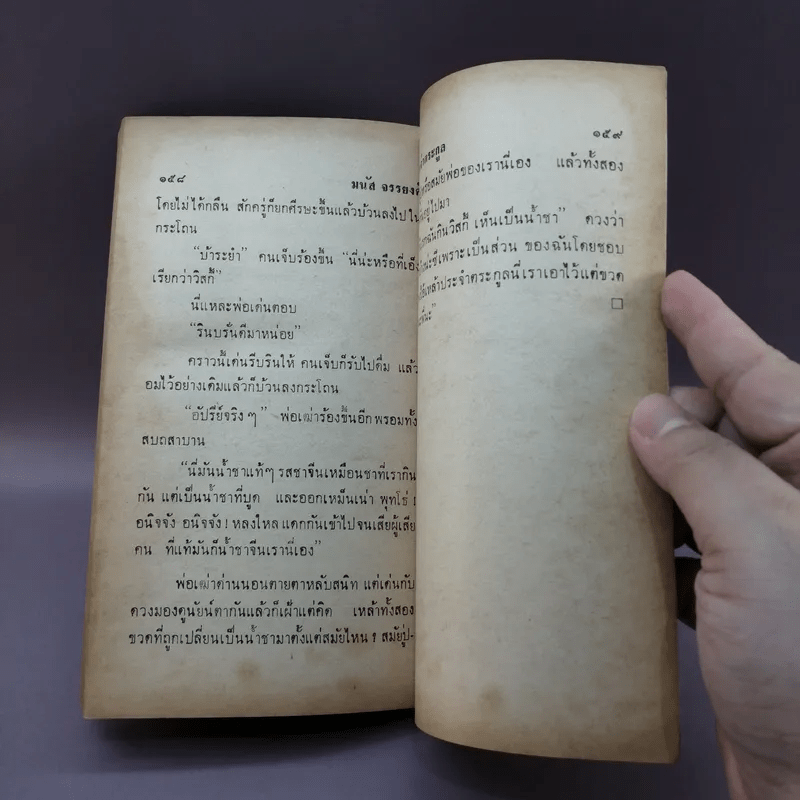 ๑๕๘ มนัส จรรยงค์
โดยไม่ได้กลืน สักครู่ก็ยกศีรษะขึ้นแล้วบ้วนลงไป ใน
กระโถน
“บ้าระยำ” คนเจ็บร้องขึ้น “นี่น่ะหรือที่เอ็ง
เรียกว่าวิสกี้”
นี่แหละพ่อเด่นตอบ
“รินบรั่นดีมาหน่อย”
คราวนี้เด่นรีบรินให้ คนเจ็บก็รับไปดื่ม แล้ว
อมไว้อย่างเดิมแล้วก็บ้วนลงกระโถน
“อัปรีย์จริง ๆ” พ่อเฒ่าร้องขึ้นอีกพร้อมทั้ง
สบถสาบาน
“นี่มันน้ำชาแท้ๆ รสชาจีนเหมือนชาที่เรากิน
กัน แต่เป็นน้ำชาที่บูด และออกเหม็นเน่า พุทโธ่ !
อนิจจัง อนิจจัง ! หลงใหล แดกกันเข้าไปจนเสียผู้เสีย
คน ที่แท้มันก็น้ำชาจีนเรานี่เอง”
พ่อเฒ่าด่านนอนตายตาหลับสนิท แต่เด่นกับ
ดวงมองดูนัยน์ตากันแล้วก็เฝ้าแต่คิด เหล้าทั้งสอง
ขวดที่ถูกเปลี่ยนเป็นน้ำชามาตั้งแต่สมัยไหน ? สมัยปู่-
ตระกูล ๑๕๙
หรือสมัยพ่อของเรานี่เอง แล้วทั้งสอง
อยู่ไปมา
ฉันกินวิสกี้ เห็นเป็นน้ำชา” ดวงว่า
น่ะซีเพราะเป็นส่วน ของฉันโดยชอบ
เหล้าประจำตระกูลนี่เราเอาไว้แต่ขวด
□